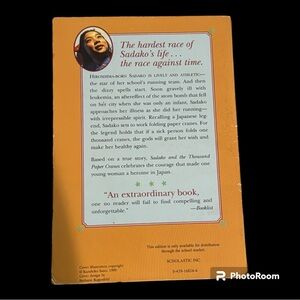 The hardest race of
Sadako's life . . .
the race against time.
HIROSHIMA-BORN SADAKO IS LIVELY AND ATHLETIC—
the star of her school's running team. And then
the dizzy spells start. Soon gravely ill with
leukemia, an aftereffect of the atom bomb that fell
on her city when she was only an infant, Sadako
approaches her illness as she did her running—
with irrepressible spirit. Recalling a Japanese leg-
end, Sadako sets to work folding paper cranes. For
the legend holds that if a sick person folds one
thousand cranes, the gods will grant her wish and
make her healthy again.
Based on a true story, Sadako and the Thousand
Paper Cranes celebrates the courage that made one
young woman a heroine in Japan.
"An extraordinary book,
one no reader will fail to find compelling and
unforgettable."
—Booklist
This edition is only available for distribution
through the school market.
SCHOLASTIC INC.
Cover illustration copyright
PhotoRoom